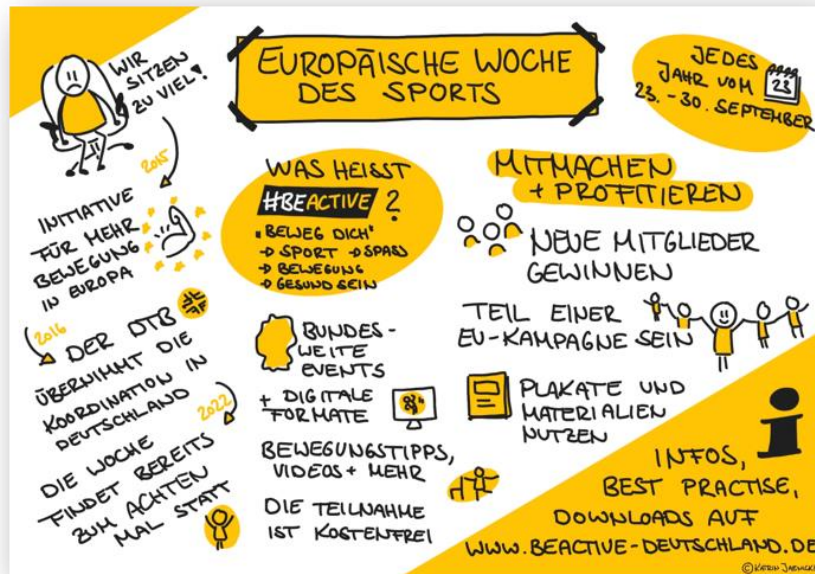 EUROPÄISCHE WOCHE
DES SPORTS
JEDES
JAHR VOM
23
23. - 30. SEPTEMBER
WIR
SITZEN
ZU VIEL!
2015
INITIATIVE
FÜR MEHR
BEWEGUNG
IN EUROPA
2016
DER DTB
ÜBERNIMMT DIE
KOORDINATION IN
DEUTSCHLAND
2022
DIE WOCHE
FINDET BEREITS
ZUM ACHTEN
MAL STATT
WAS HEISST
#BEACTIVE ?
"BEWEG DICH"
→ SPORT → SPASS
→ BEWEGUNG
→ GESUND SEIN
BUNDES-
WEITE
EVENTS
+ DIGITALE
FORMATE
BEWEGUNGSTIPPS,
VIDEOS + MEHR
DIE TEILNAHME
IST KOSTENFREI
MITMACHEN
+ PROFITIEREN
NEUE MITGLIEDER
GEWINNEN
TEIL EINER
EU-KAMPAGNE SEIN
PLAKATE UND
MATERIALIEN
NUTZEN
i
INFOS,
BEST PRACTISE,
DOWNLOADS AUF
WWW.BEACTIVE-DEUTSCHLAND.DE
© KATRIN